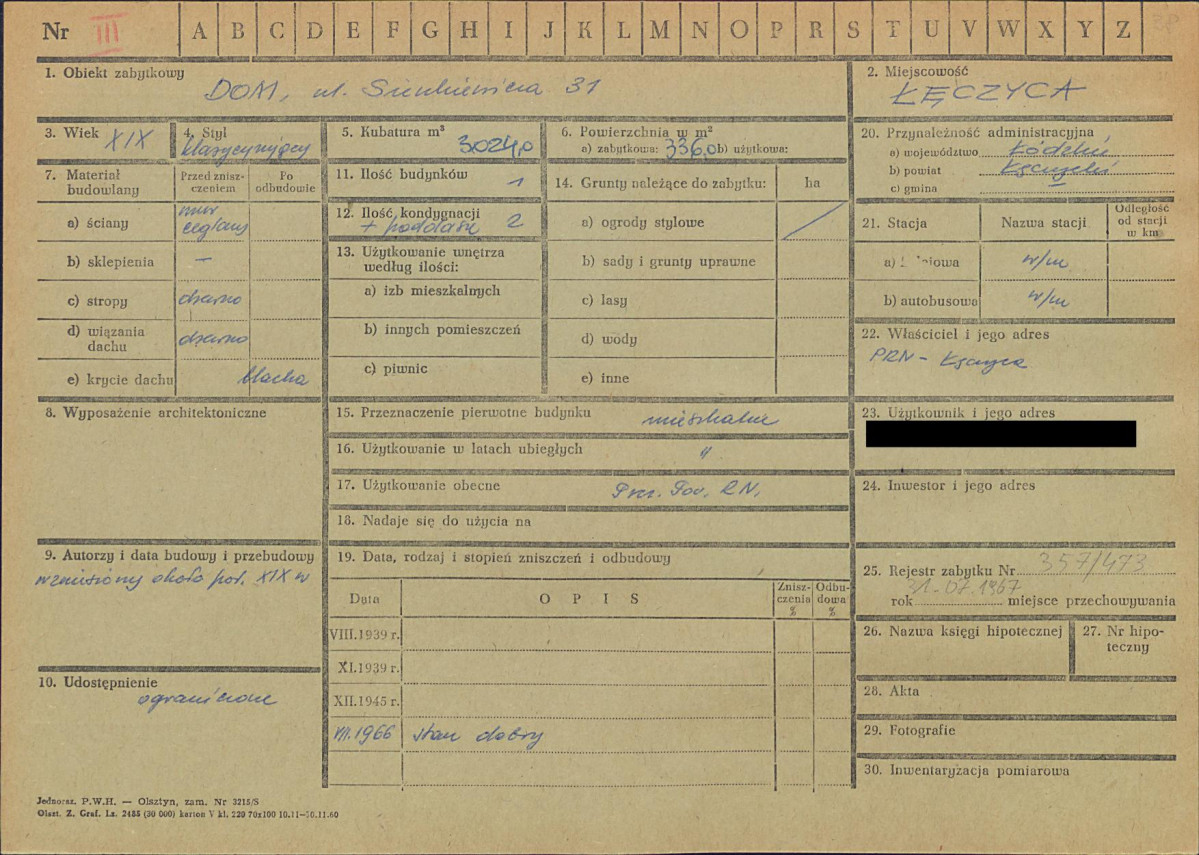 Nr III A B C D E F G H I J K L M N O P R S T U V W X Y Z
1. Obiekt zabytkowy
DOM, ul. Sienkiewicza 31
2. Miejscowość
ŁĘCZYCA
3. Wiek XIX
4. Styl
klasycyzujący
5. Kubatura m³
3.024,0
6. Powierzchnia w m²
a) zabytkowa: 336,0 b) użytkowa:
20. Przynależność administracyjna
a) województwo Łódzkie
b) powiat Łęczycki
c) gmina
7. Materiał budowlany
Przed zniszczeniem
Po odbudowie
a) ściany
mur ceglany
b) sklepienia –
c) stropy drewno
d) wiązania dachu drewno
e) krycie dachu blacha
11. Ilość budynków 1
12. Ilość kondygnacji
+ poddasze 2
13. Użytkowanie wnętrza
według ilości:
a) izb mieszkalnych
b) innych pomieszczeń
c) piwnic
14. Grunty należące do zabytku: ha
a) ogrody stylowe
b) sady i grunty uprawne
c) lasy
d) wody
e) inne
21. Stacja
Nazwa stacji
Odległość
od stacji
w km
a) w/m
b) autobusowa w/m
22. Właściciel i jego adres
PRN - Łęczyca
8. Wyposażenie architektoniczne
15. Przeznaczenie pierwotne budynku mieszkalne
16. Użytkowanie w latach ubiegłych "
17. Użytkowanie obecne Prez. Pow. RN.
18. Nadaje się do użycia na
23. Użytkownik i jego adres
24. Inwestor i jego adres
9. Autorzy i data budowy i przebudowy
wzniesiony około poł. XIX w
19. Data, rodzaj i stopień zniszczeń i odbudowy
Data
OPIS
Zniszczenia
%
Odbudowa
%
VIII.1939 r.
XI.1939 r.
XII.1945 r.
VII.1966 stan dobry
10. Udostępnienie
ograniczone
25. Rejestr zabytku Nr 357/473
31-07.1967
rok miejsce przechowywania
26. Nazwa księgi hipotecznej
27. Nr hipoteczny
28. Akta
29. Fotografie
30. Inwentaryzacja pomiarowa
Jednoraz. P.W.H. — Olsztyn, zam. Nr 3215/S
Olszt. Z. Graf. Lz. 2485 (30 000) karton V kl. 220 70x100 10.11—30.11.60